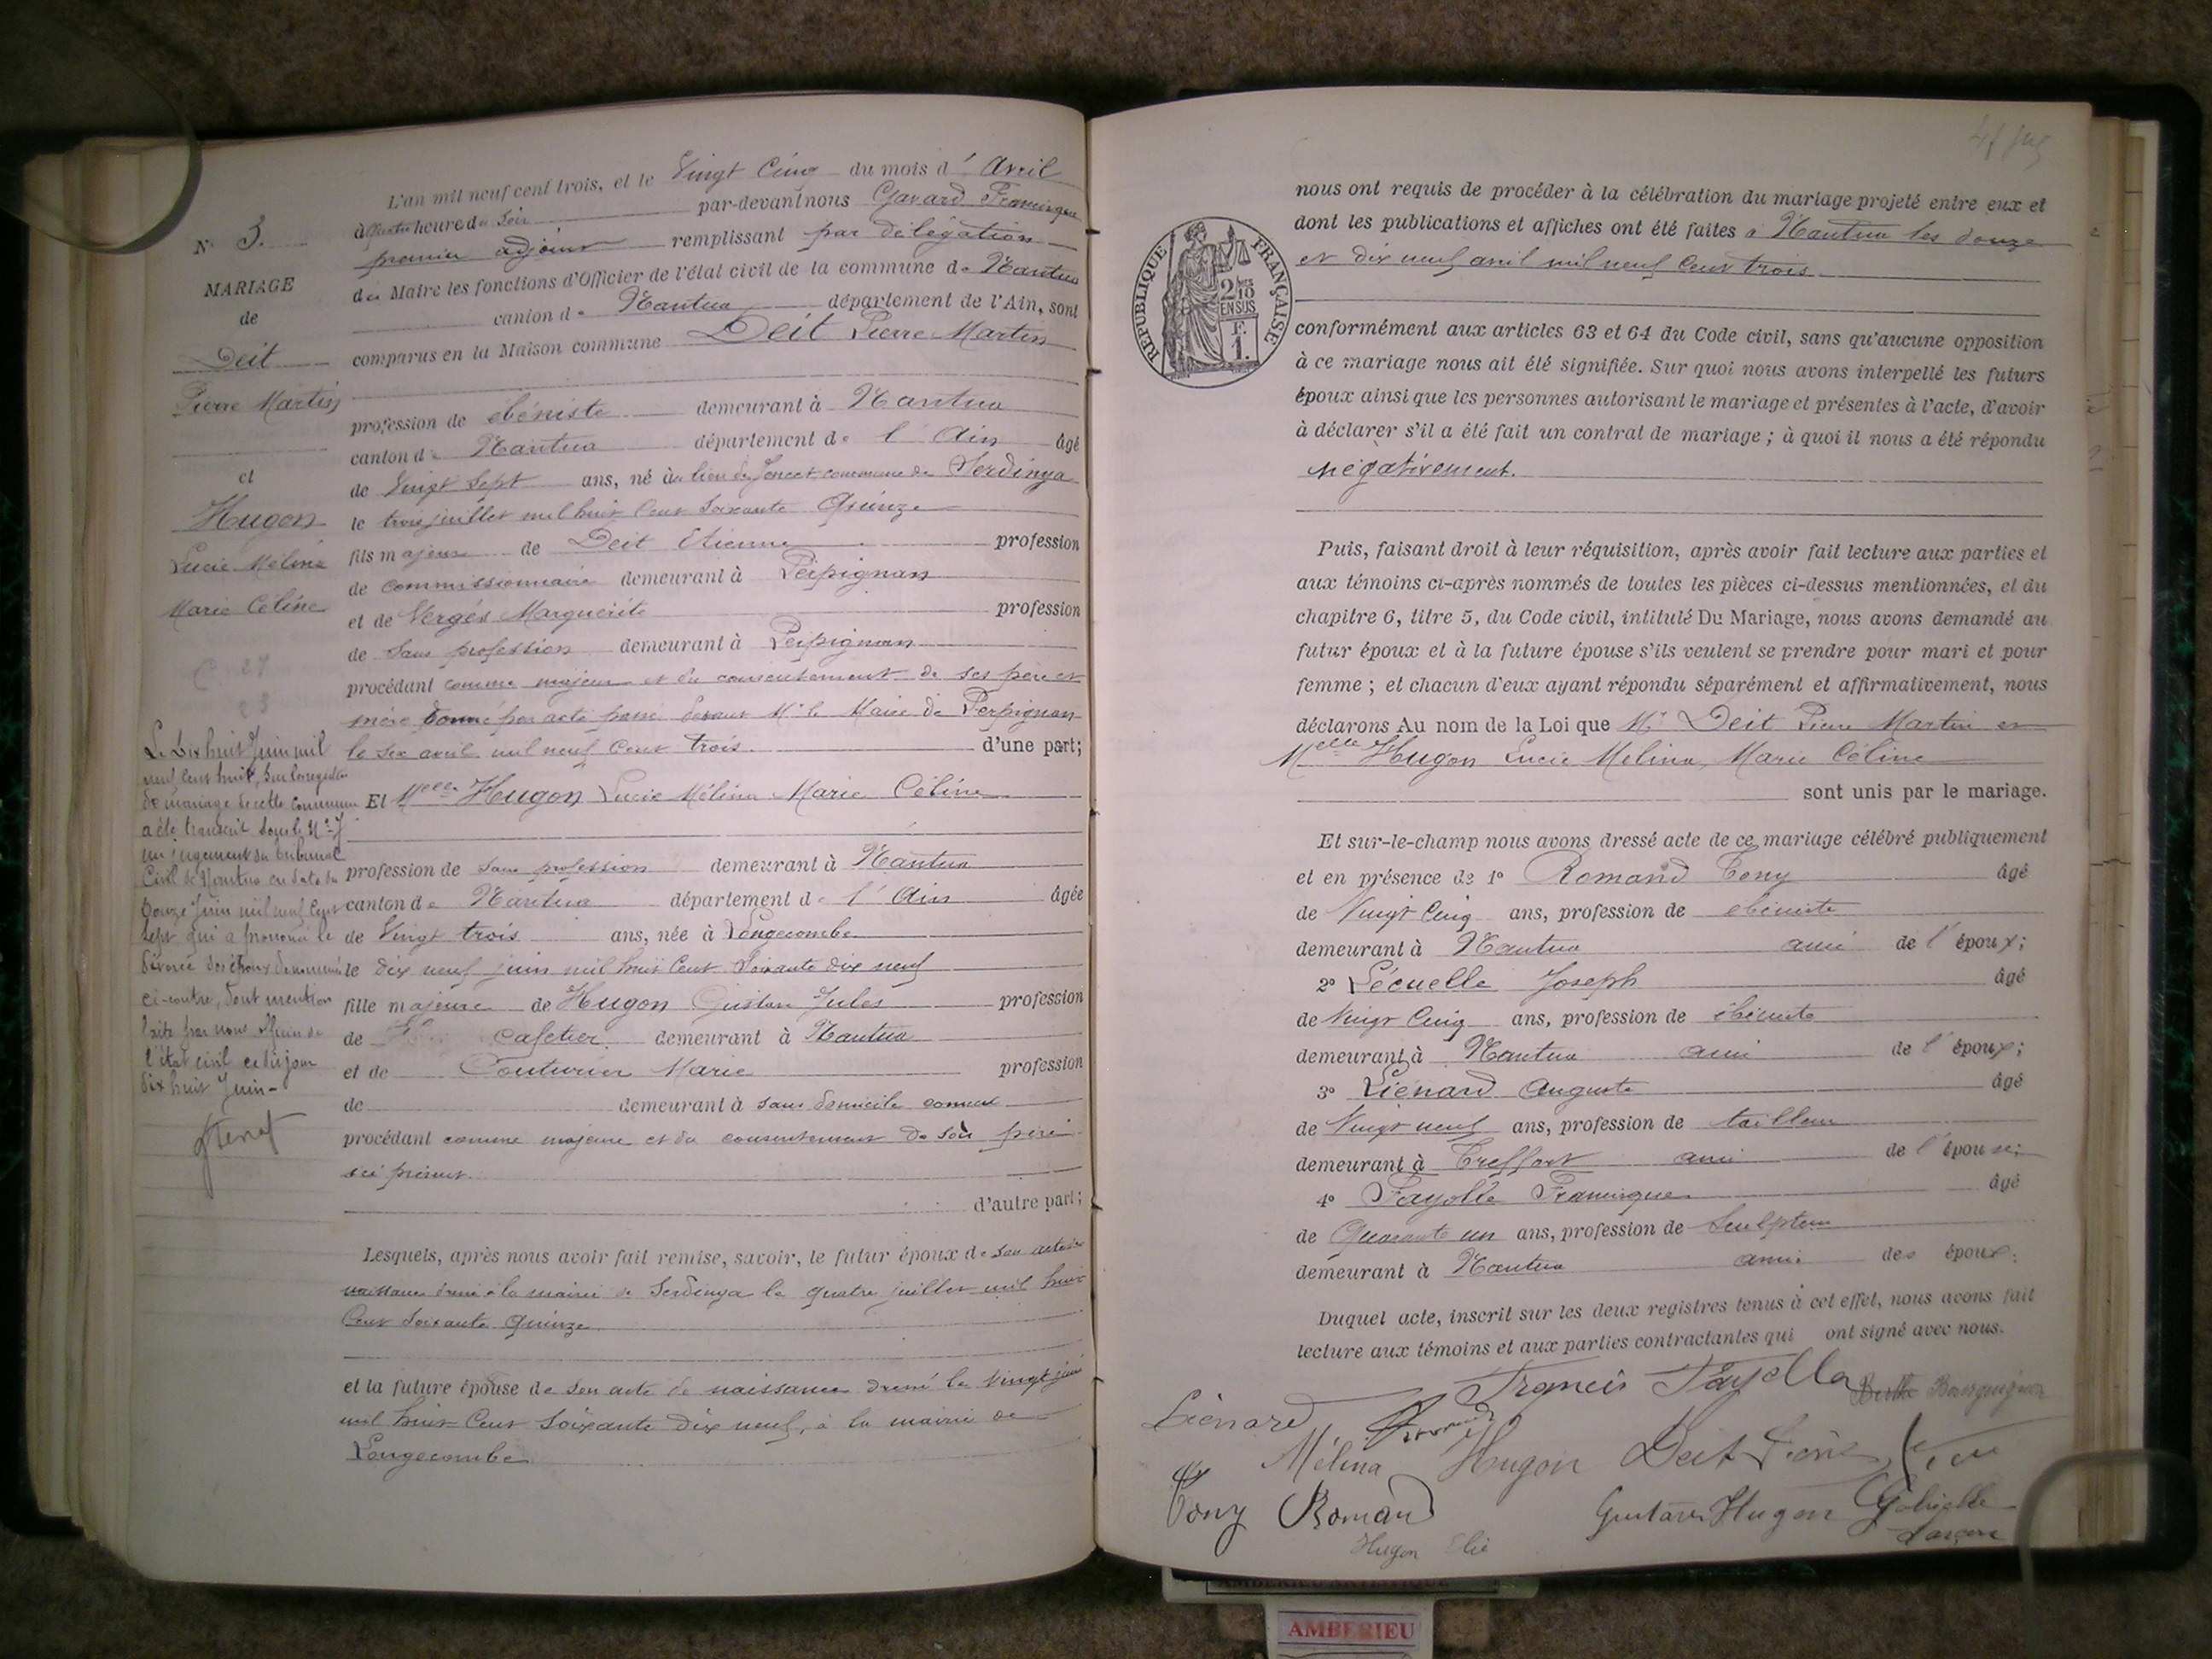 L'an mil neuf cent trois, et le Vingt Cinq du mois d' Avril
à quatre heure de Soir par-devant nous Gavard Francisque
premier adjoint remplissant par délégation
du Maire les fonctions d'Officier de l'état civil de la commune de Nantua
canton de Nantua département de l'Ain, sont
comparus en la Maison commune Deit Pierre Martin
profession de ébéniste demeurant à Nantua
canton de Nantua département de l' Ain âgé
de Vingt Sept ans, né à lieu de Joncet commune de Serdinya
le trois juillet mil huit Cent Soixante Quinze
fils majeur de Deit Etienne profession
de commissionnaire demeurant à Perpignan
et de Vergés Marguerite profession
de Sans profession demeurant à Perpignan
procédant comme majeur et du consentement de ses père et
mère donné par acte passé devant Mr le Maire de Perpignan
le six avril mil neuf Cent trois. d'une part;
Et Melle Hugon Lucie Mélina Marie Céline
profession de sans profession demeurant à Nantua
canton de Nantua département de l' Ain âgée
de Vingt trois ans, née à Longecombe
le dix neuf juin mil huit Cent Soixante dix neuf
fille majeure de Hugon Gustave Jules profession
de Cafetier demeurant à Nantua
et de Couturier Marie profession
de demeurant à sans domicile connu
procédant comme majeure et du consentement de son père
ici présent.
d'autre part;
Lesquels, après nous avoir fait remise, savoir, le futur époux de son acte de
naissance dressé à la mairie de Serdinya le quatre juillet mil huit
Cent Soixante Quinze
et la future épouse de son acte de naissance dressé le Vingt juin
mil huit Cent Soixante Dix neuf, à la mairie de
Longecombe
N° 3.
MARIAGE
de
Deit
Pierre Martin
et
Hugon
Lucie Mélina
Marie Céline
Le Dix huit Juin mil
neuf Cent huit, Sur le registre
de mariage de cette commune
a été transcrit sous le N° 7
un jugement du tribunal
Civil de Nantua en date du
Douze Juin mil neuf Cent
Sept qui a prononcé le
divorce des époux dénommés
ci-contre, Dont mention
faite par nous officier de
l'état civil ce dit jour
Dix huit Juin -
nous ont requis de procéder à la célébration du mariage projeté entre eux et
dont les publications et affiches ont été faites à Nantua les douze
et dix neuf avril mil neuf Cent trois
RÉPUBLIQUE FRANÇAISE
2/10
EN SUS
F.
1.
conformément aux articles 63 et 64 du Code civil, sans qu'aucune opposition
à ce mariage nous ait été signifiée. Sur quoi nous avons interpellé les futurs
époux ainsi que les personnes autorisant le mariage et présentes à l'acte, d'avoir
à déclarer s'il a été fait un contrat de mariage ; à quoi il nous a été répondu
négativement.
Puis, faisant droit à leur réquisition, après avoir fait lecture aux parties et
aux témoins ci-après nommés de toutes les pièces ci-dessus mentionnées, et du
chapitre 6, titre 5, du Code civil, intitulé Du Mariage, nous avons demandé au
futur époux et à la future épouse s'ils veulent se prendre pour mari et pour
femme ; et chacun d'eux ayant répondu séparément et affirmativement, nous
déclarons Au nom de la Loi que Mr Deit Pierre Martin et
Melle Hugon Lucie Melina, Marie Céline
sont unis par le mariage.
Et sur-le-champ nous avons dressé acte de ce mariage célébré publiquement
et en présence de 1° Romand Tony âgé
de Vingt Cinq ans, profession de ébéniste
demeurant à Nantua ami de l' époux;
2° Lécuelle Joseph âgé
de Vingt Cinq ans, profession de ébéniste
demeurant à Nantua ami de l' époux;
3° Liénard Auguste âgé
de Vingt neuf ans, profession de tailleur
demeurant à Treffort ami de l' épouse;
4° Fayolle Francisque âgé
de Quarante un ans, profession de Sculpteur
demeurant à Nantua ami des époux.
Duquel acte, inscrit sur les deux registres tenus à cet effet, nous avons fait
lecture aux témoins et aux parties contractantes qui ont signé avec nous.
Francis Fayolle
Berthe Bourguignon
Liénard
Mélina Hugon Deit Pierre
Tony Romand Gustave Hugon Gabrielle
Hugon Elie
AMBERIEU